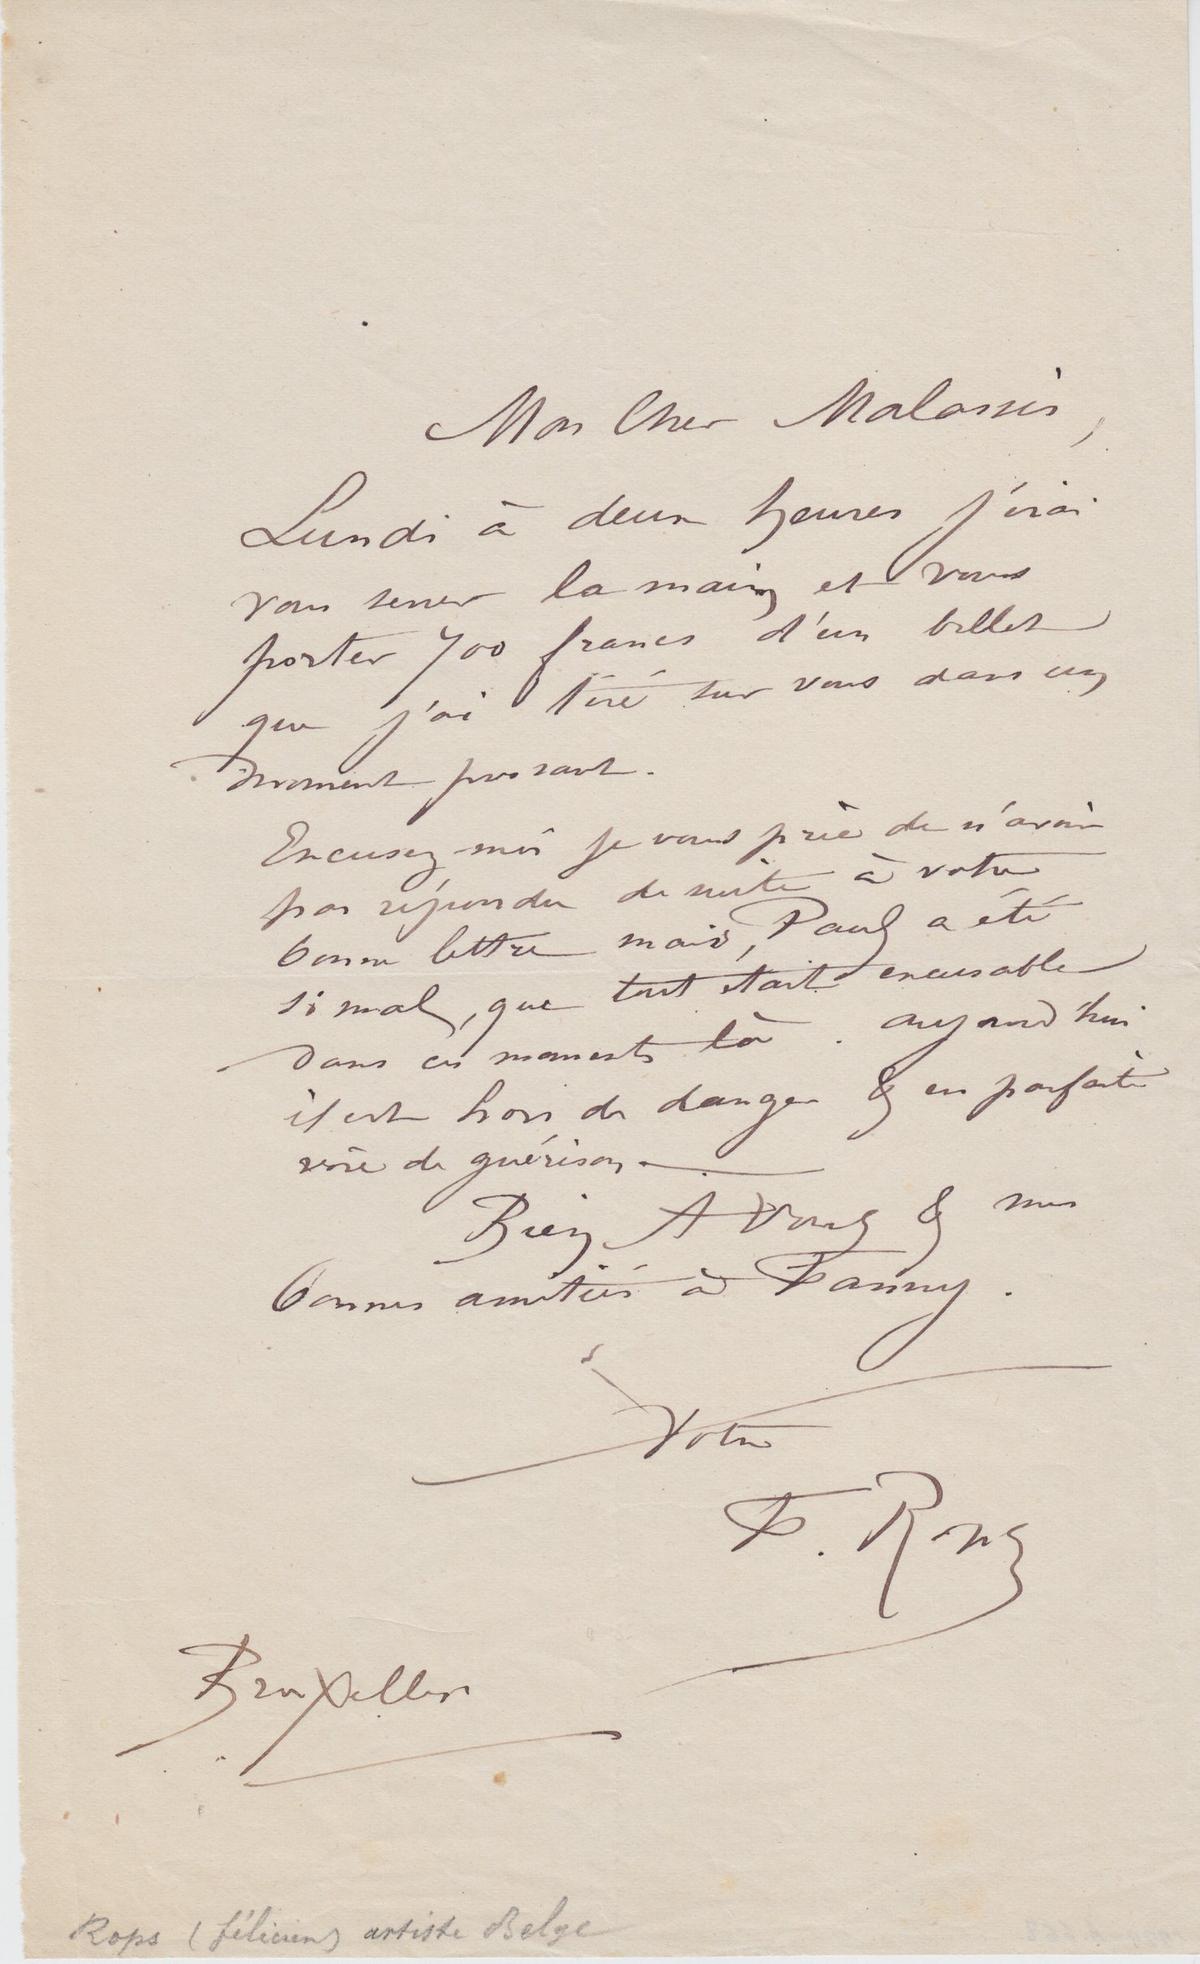 Mon Cher Malassis,
Lundi à deux heures j'irai
vous serrer la main et vous
porter 700 francs d'un billet
que j'ai tiré sur vous dans un
moment pressant.
Excusez-moi je vous prie de n'avoir
pas répondu de suite à votre
bonne lettre mais, Paul a été
si mal, que tout était excusable
dans ces moments là. aujourd'hui
il est hors de danger & en parfaite
voie de guérison.—
Bien A Vous & mes
bonnes amitiés à Fanny.
Votre
F. Rops
Bruxelles
Rops (félicien) artiste Belge